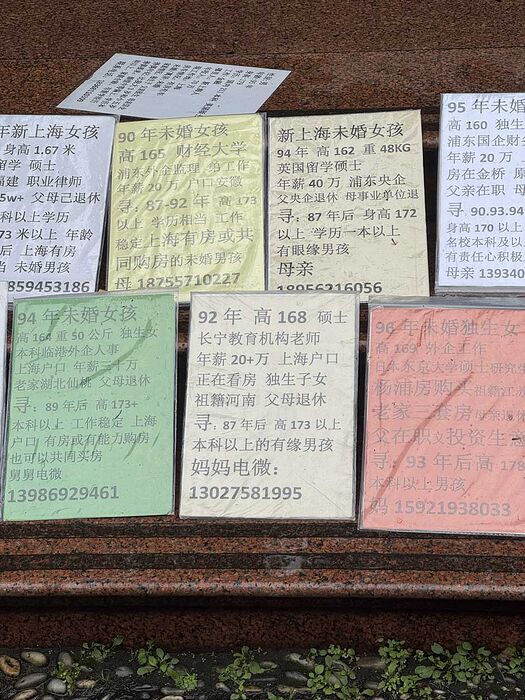 年新上海女孩
身高 1.67 米
留学 硕士
福建 职业律师
5w+ 父母己退休
科以上学历
73 米以上 年龄
后 上海有房
当 未婚男孩
859453186
90 年未婚女孩
高 165 财经大学
浦东外企监理 给工作
年薪 20 万 户口安徽
寻: 87-92 年 高 173
以上 学历相当 工作
稳定上海有房或共
同购房的未婚男孩
母 18755710227
新上海未婚女孩
94 年 高 162 重 48KG
英国留学硕士
年薪 40 万 浦东央企
父央企退休 母事业单位退
寻: 87 年后 身高 172
以上 学历一本以上
有眼缘男孩
母亲
18956216056
95 年未婚
高 160 独生
浦东国企财
年薪 20 万
房在金桥 原
父亲在职 母
寻 90.93.94
高 170 以上
名校本科及以
有责任心积极
母亲 139340
94 年未婚女孩
高 164 重 50 公斤 独生女
本科临港外企人事
上海户口 年薪二十万
老家湖北仙桃 父母退休
寻: 89 年后 高 173+
本科以上 工作稳定 上海
户口 有房或有能力购房
也可以共同买房
舅舅电微
13986929461
92 年 高 168 硕士
长宁教育机构老师
年薪 20+万 上海户口
正在看房 独生子女
祖籍河南 父母退休
寻: 87 年后 高 173 以上
本科以上的有缘男孩
妈妈电微:
13027581995
96 年未婚独生女
高 169 外企工作
日本东京大学硕士研究生
杨浦房购买 祖籍江
老家三套房 母亲退休
父在职 投资生意
寻: 93 年后高 178
本科以上男孩
妈 15921938033